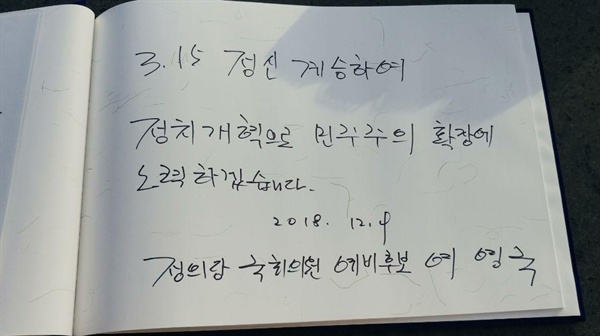 3.15 정신 계승하여
정치개혁으로 민주주의 확장에
노력하겠습니다.
2018. 12. 4
정의당 국회의원 예비후보 여 영국